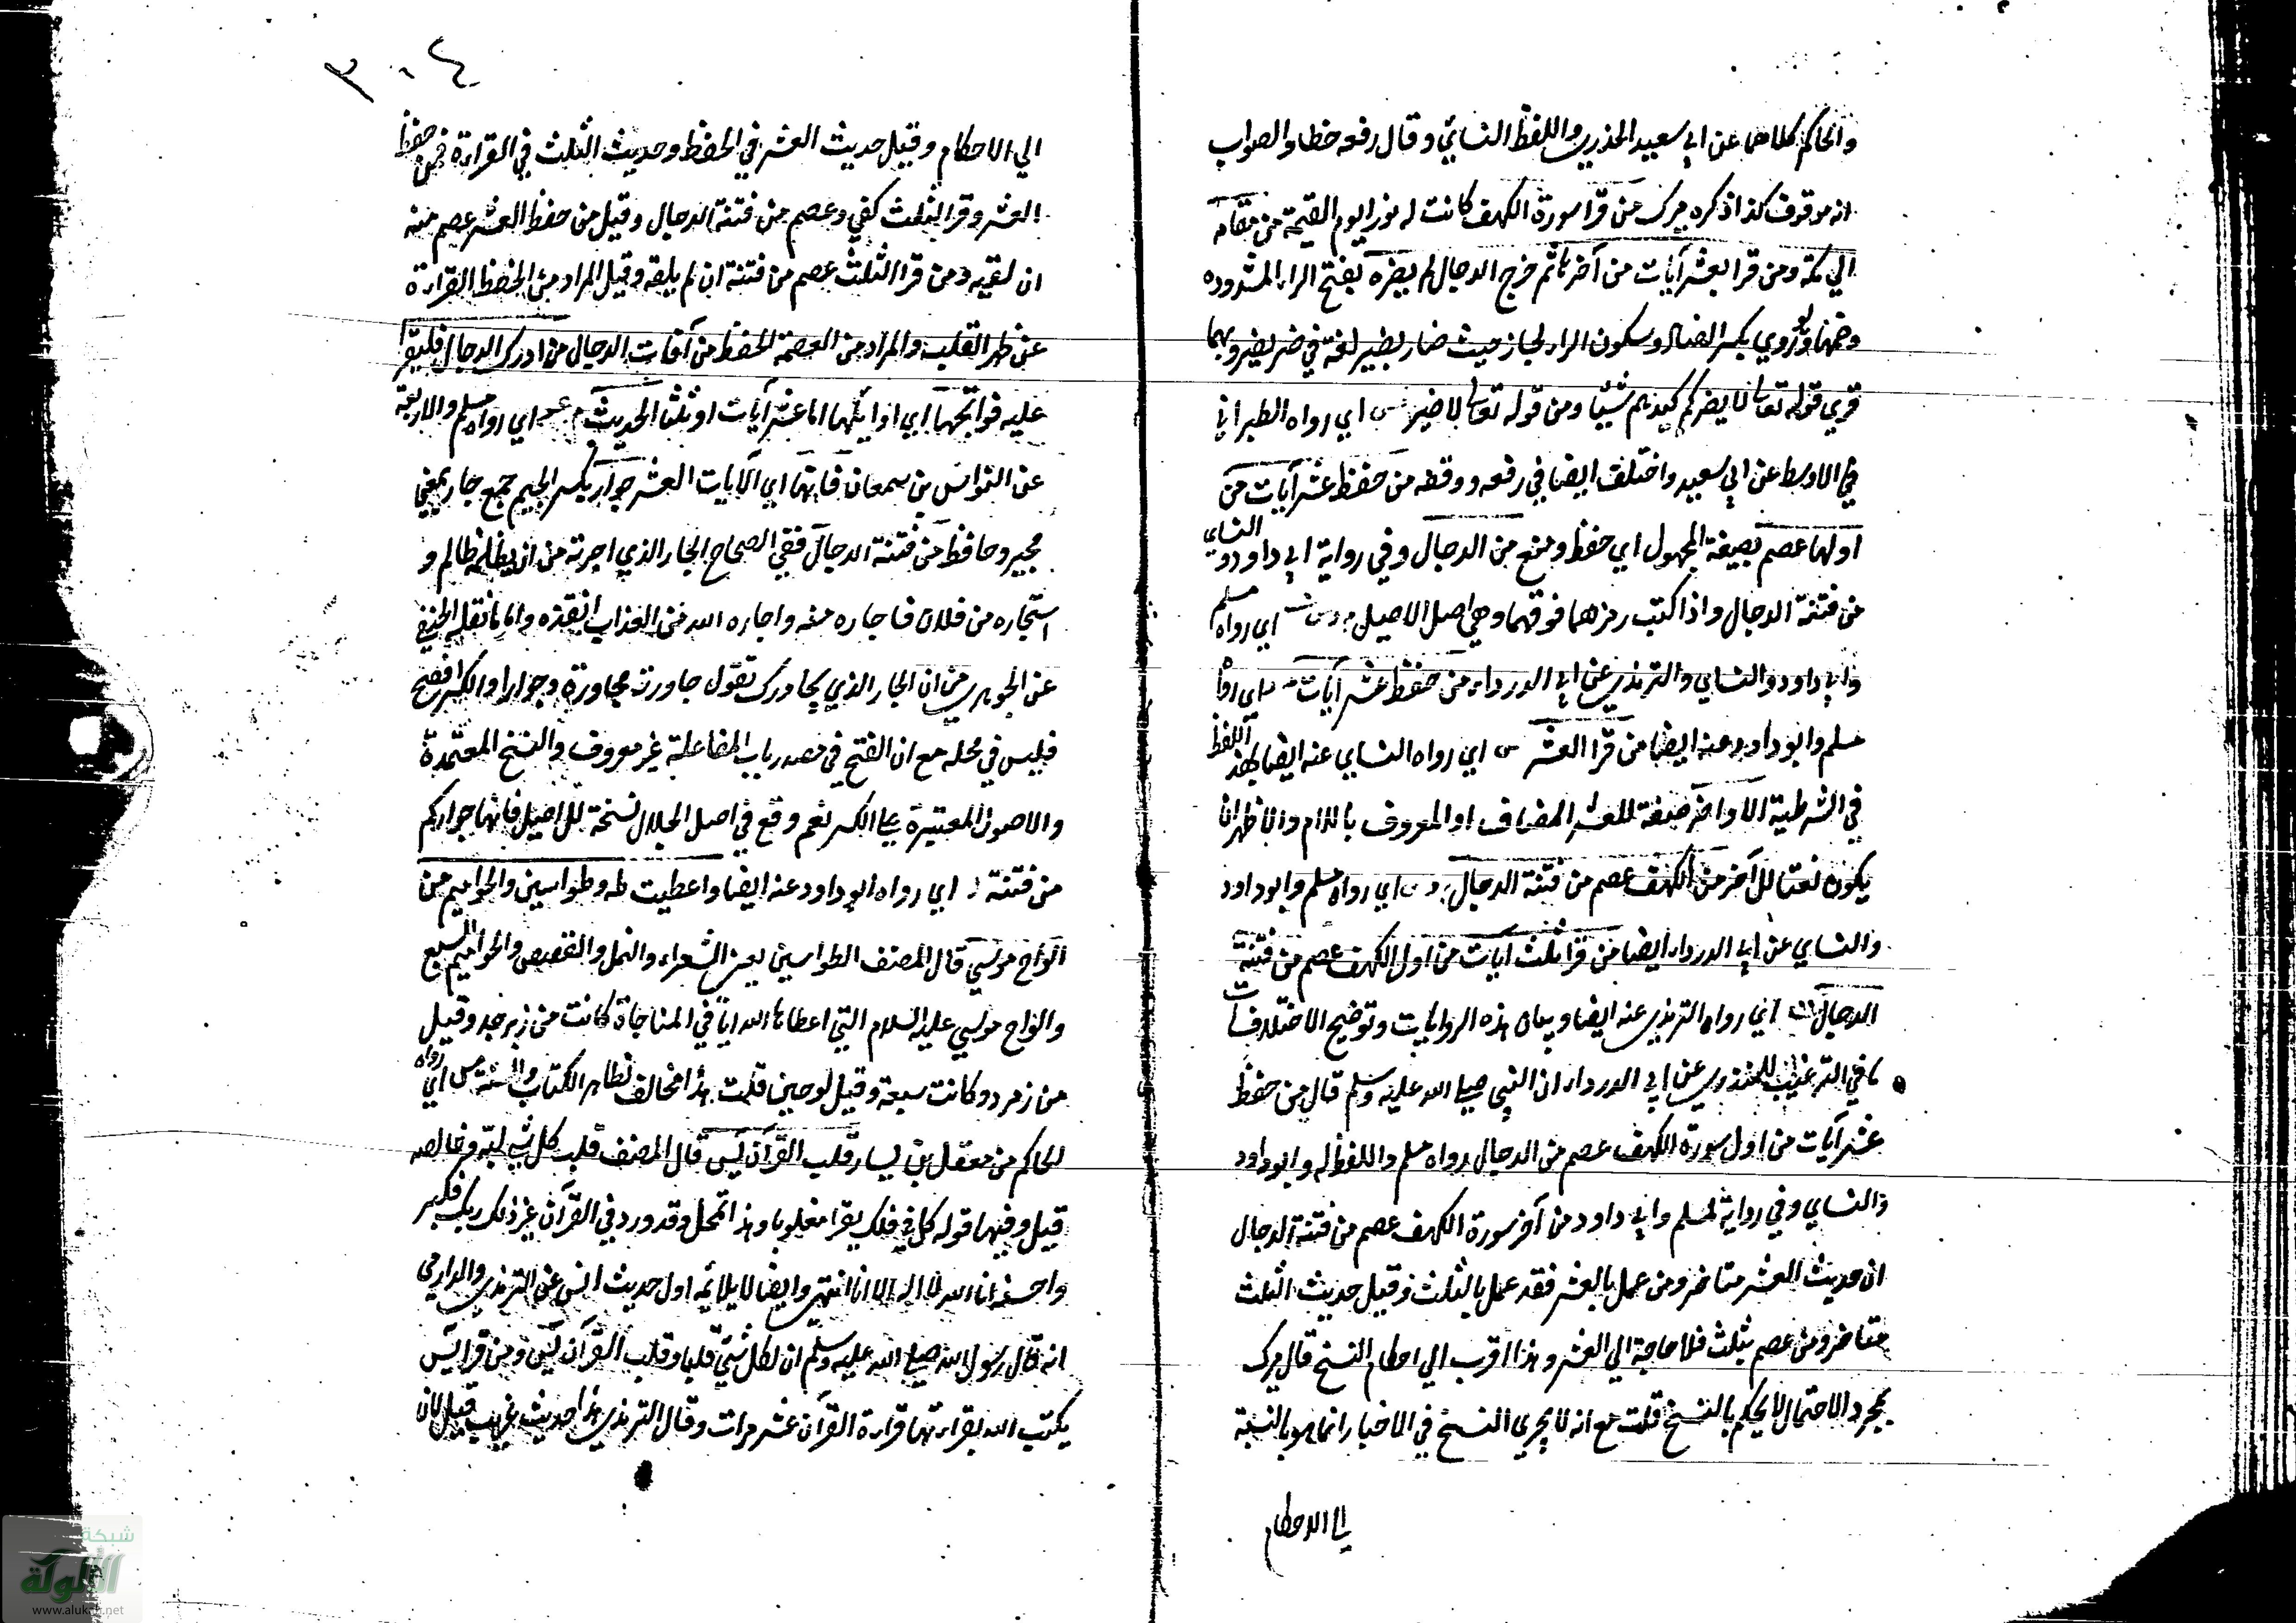 والحاكم كلاهما عن ابي سعيد الخذري واللفظ النسائي وقال رفعه خطا والصواب
انه موقوف كذا ذكره ميرك من قرا سورة الكهف كانت له نورا يوم القيمة من مقامه
الي مكة ومن قرا بعشر آيات من آخرها ثم خرج الدجال لم يضره بفتح الراء المشدوده
وضمها ولو روي بكسر الضاد وسكون الراء لجاز حيث ضار يضير لغة في ضر يضر وبهما
قري قوله تعالى لا يضركم كيدهم شيئا ومن قوله تعالى لا ضير طس اي رواه الطبراني
في الاوسط عن ابي سعيد واختلف ايضا في رفعه ووقفه من حفظ عشر آيات من
اولها عصم بصيغة المجهول اي حفظ ومنع من الدجال وفي رواية ابي داود والنساي
من فتنة الدجال واذا كتب رمزهما فوقهما وهي اصل الاصيل م د س ت اي رواه مسلم
وابي داود والنساي والترمذي عن ابي الدرداء من حفظ عشر آيات م د اي رواه
مسلم وابو داود عنه ايضا من قرا العشر س اي رواه النساي عنه ايضا بهذا اللفظ
في الشرطية الاواخر صفة للعشر المضاف او المعروف باللام والاظهر ان
يكون نعتا لل آخر من الكهف عصم من فتنة الدجال م د س اي رواه مسلم وابو داود
والنساي عن ابي الدرداء ايضا من قرا ثلث ايات من اول الكهف عصم من فتنة
الدجال ت اي رواه الترمذي عنه ايضا وبيان هذه الروايات وتوضيح الاختلافات
ما في الترغيب للمنذري عن ابي الدرداء ان النبي صلي الله عليه وسلم قال من حفظ
عشر آيات من اول سورة الكهف عصم من الدجال رواه مسلم واللفظ له وابو داود
والنساي وفي رواية لمسلم وابي داود من آخر سورة الكهف عصم من فتنة الدجال
ان حديث العشر متاخر ومن عمل بالعشر فقد عمل بالثلث وقيل حديث الثلث
متاخر ومن عصم بثلث فلا حاجة الي العشر وهذا اقرب الي احكام النسخ قال ميرك
بمجرد الاحتمال لا يحكم بالنسخ قلت مع انه لا يجري النسخ في الاخبار انما هو بالنسبة
الى الاحكام
٣٠٤
الي الاحكام وقيل حديث العشر في الحفظ وحديث الثلث في القراءة فمن حفظ
العشر وقرا الثلث كفي وعصم من فتنة الدجال وقيل من حفظ العشر عصم منه
ان لقيه ومن قرا الثلث عصم من فتنة ان لم يلقه وقيل المراد من الحفظ القراءة
عن ظهر القلب والمراد من العصمة الحفظ من آفات الدجال من ادرك الدجال فليقرا
عليه فواتحها اي اوايلها اما عشر آيات او ثلثا الحديث م عه اي رواه مسلم والاربعة
عن النواس بن سمعان فانها اي الايات العشر جوار بكسر الجيم جمع جار بمعني
مجير وحافظ من فتنة الدجال ففي الصحاح الجار الذي اجرته من ان يظلمه ظالم و
استجاره من فلان فاجاره منه واجاره الله من العذاب انقذه واما ما نقله الحنفي
عن الجوهري من ان الجار الذي يجاورك تقول جاورته مجاورة وجوارا والكسر افصح
فليس في محله مع ان الفتح في مصدر باب المفاعلة غير معروف والنسخ المعتمدة
والاصول المعتبرة علي الكسر نعم وقع في اصل الجلال نسخة لل اصيل فانها جواركم
من فتنة د اي رواه ابو داود عنه ايضا واعطيت طه وطواسين والحواميم من
الواح موسي قال المصنف الطواسين يعني الشعراء والنمل والقصص والحواميم السبع
والواح موسي عليه السلام التي اعطاها الله اياه في المناجاة كانت من زبرجد وقيل
من زمرد وكانت سبعة وقيل لوحين قلت هذا مخالف لظاهر الكتاب والسنة مس اي رواه
الحاكم من معقل بن يسار قلب القرآن يس قال المصنف قلب كل شي لبه وخالصه
قيل وفيها قوله كل في فلك يقرا مقلوبا وهذا تمحل وقد ورد في القرآن غير ذلك ربك فكبر
انه قال رسول الله صلي الله عليه وسلم ان لكل شئ قلبا وقلب القرآن يس ومن قرا يس
يكتب الله بقراءتها قراءة القرآن عشر مرات وقال الترمذي هذا حديث غريب قيل لان
شبكة
الألوكة
www.alukah.net